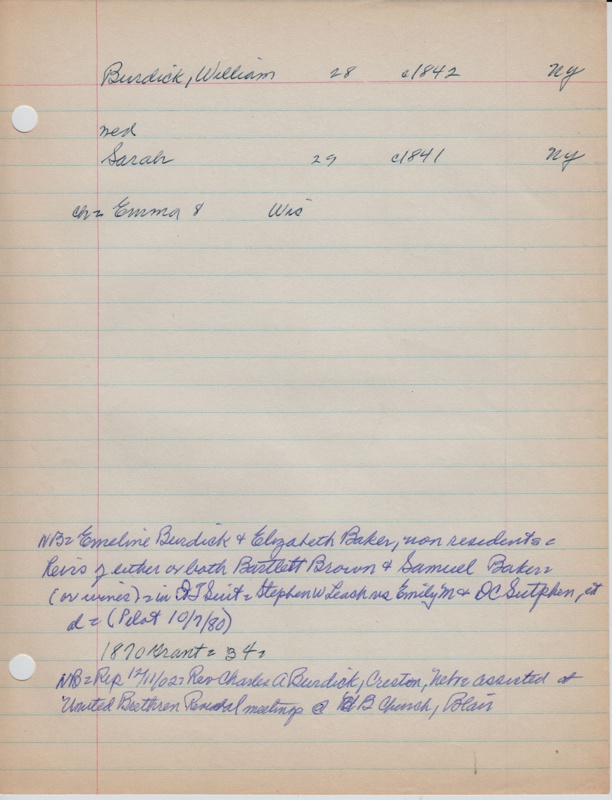 Burdick, William 28 c1842 Ny
med
Sarah 29 c1841 Ny
ch = Emma 8 Wis
NB = Emeline Burdick & Elizabeth Baker, non residents =
heirs of either or both Bartlett Brown & Samuel Baker =
(or wives) = in suit = Stephen W Leach vs Emily M & DC Sutphen, et
al = (Pilot 10/7/80)
1870 Grant = 34 =
NB = Rep 12/11/02 = Rev Charles A Burdick, Creston, Nebr assisted at
United Brethren Revival meetings @ UB Church, Blair